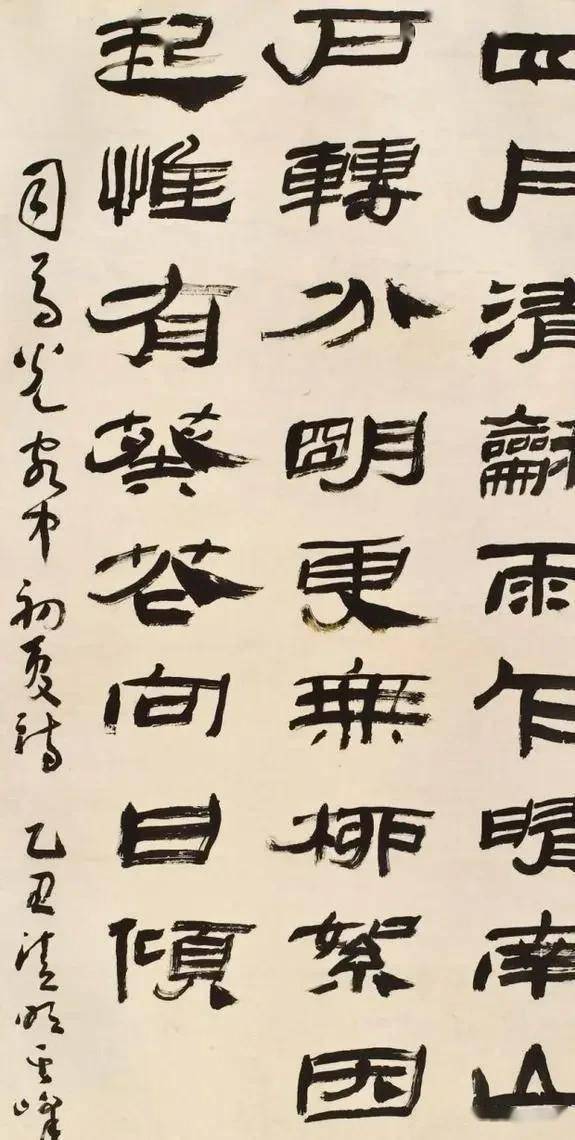 四月清龢雨乍晴南山
戶轉分朙更無柳絮因
起惟有葵花向日傾
司馬光客中初夏詩 乙丑清明其峰